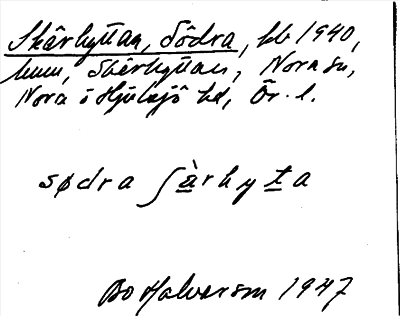 Skärhyttan, Södra, kb 1940,
hmn, Skärhyttan, Nora sn,
Nora o Hjulsjö hd, Ör. l.
sødra ʃàrhyta
Bo Halvarson 1947